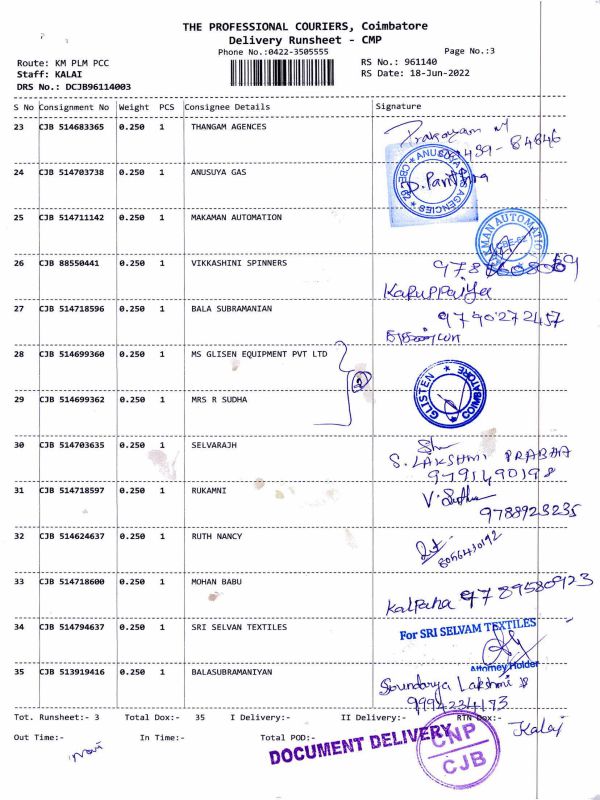 THE PROFESSIONAL COURIERS, Coimbatore
Delivery Runsheet - CMP
Phone No.:0422-3505555 Page No.:3
Route: KM PLM PCC RS No.: 961140
Staff: KALAI RS Date: 18-Jun-2022
DRS No.: DCJB96114003
S No Consignment No Weight PCS Consignee Details Signature
23 CJB 514683365 0.250 1 THANGAM AGENCES
84846
24 CJB 514703738 0.250 1 ANUSUYA GAS
ANUSUYA GAS AGENCIES
25 CJB 514711142 0.250 1 MAKAMAN AUTOMATION
MAKAMAN AUTOMATION
26 CJB 88550441 0.250 1 VIKKASHINI SPINNERS
Karuppaiya
27 CJB 514718596 0.250 1 BALA SUBRAMANIAN
9790272457
28 CJB 514699360 0.250 1 MS GLISEN EQUIPMENT PVT LTD
GLISTEN COIMBATORE
29 CJB 514699362 0.250 1 MRS R SUDHA
30 CJB 514703635 0.250 1 SELVARAJH
S. LAKSHMI PRABHA
9791490198
31 CJB 514718597 0.250 1 RUKAMNI
9788923235
32 CJB 514624637 0.250 1 RUTH NANCY
8056430192
33 CJB 514718600 0.250 1 MOHAN BABU
Kalpana 9789580923
34 CJB 514794637 0.250 1 SRI SELVAN TEXTILES
For SRI SELVAM TEXTILES
Attorney Holder
35 CJB 513919416 0.250 1 BALASUBRAMANIYAN
Soundarya Lakshmi S
9994234173
Tot. Runsheet:- 3 Total Dox:- 35 I Delivery:- II Delivery:- RTN Dox:-
Kalai
Out Time:- In Time:- Total POD:-
DOCUMENT DELIVERY
CNP
CJB